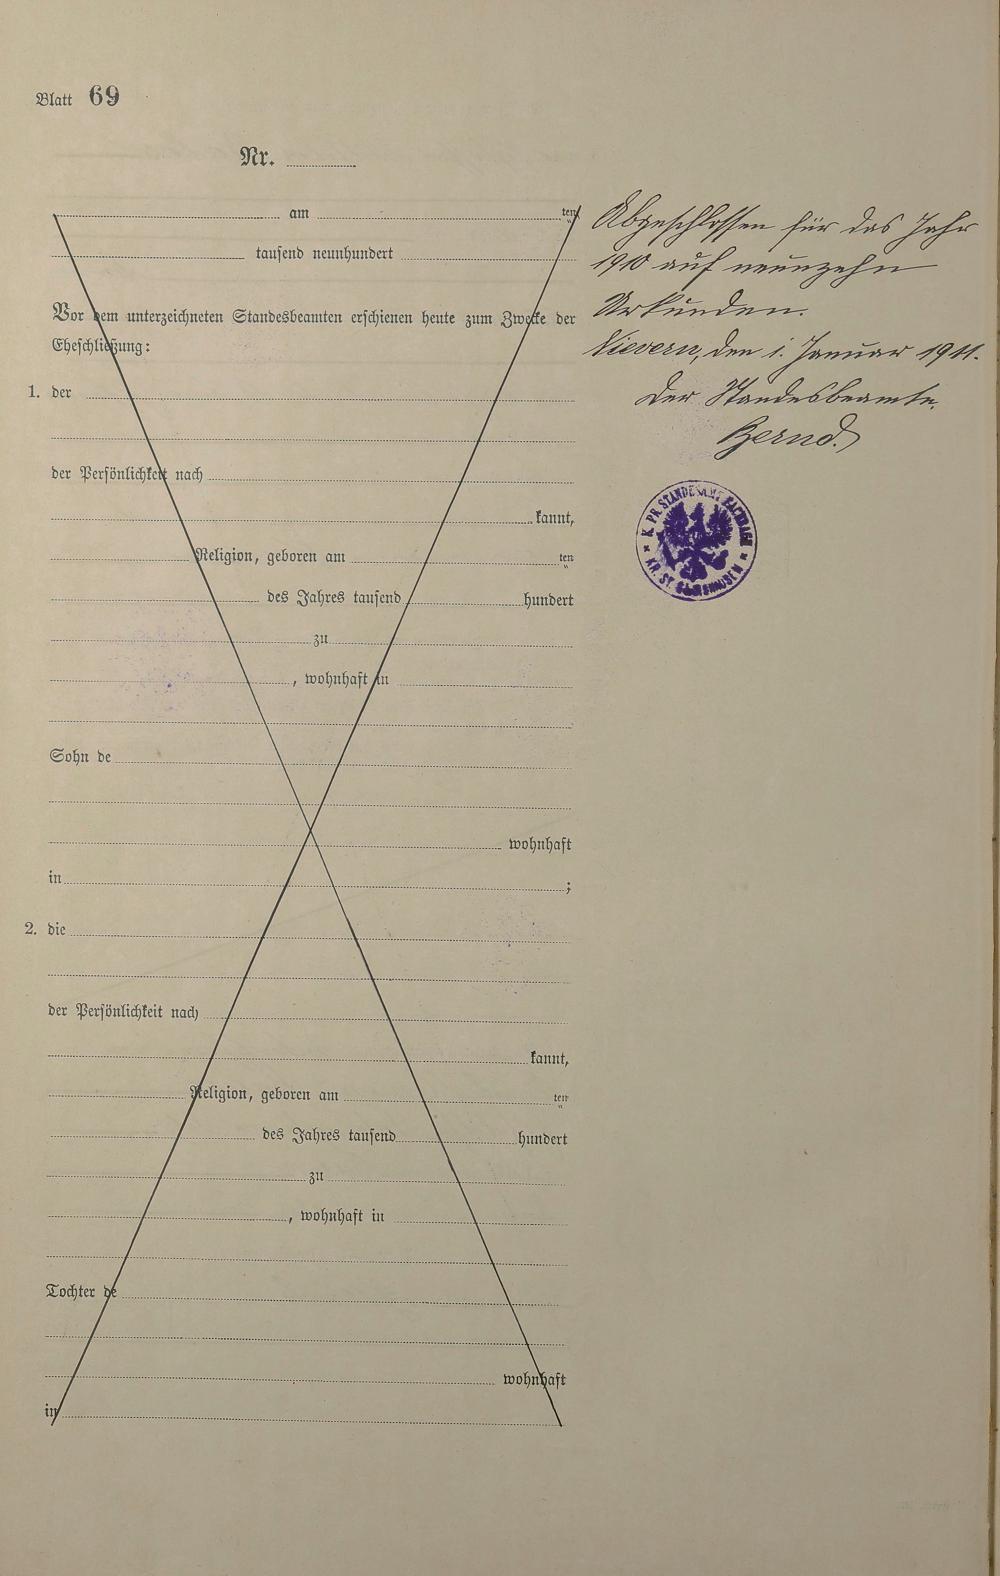 Blatt 69
Nr.
am ten
tausend neunhundert
Vor dem unterzeichneten Standesbeamten erschienen heute zum Zwecke der
Eheschließung:
1. der
der Persönlichkeit nach
kannt,
Religion, geboren am ten
des Jahres tausend hundert
zu
, wohnhaft in
Sohn de
wohnhaft
in ;
2. die
der Persönlichkeit nach
kannt,
Religion, geboren am ten
des Jahres tausend hundert
zu
, wohnhaft in
Tochter de
wohnhaft
in
Abgeschlossen für das Jahr
1910 auf neunzehn
Urkunden.
Nievern, den 1. Januar 1911.
Der Standesbeamte.
Bernd.
K. PR. STANDESAMT FACHBACH
KR. ST. GOARSHAUSEN